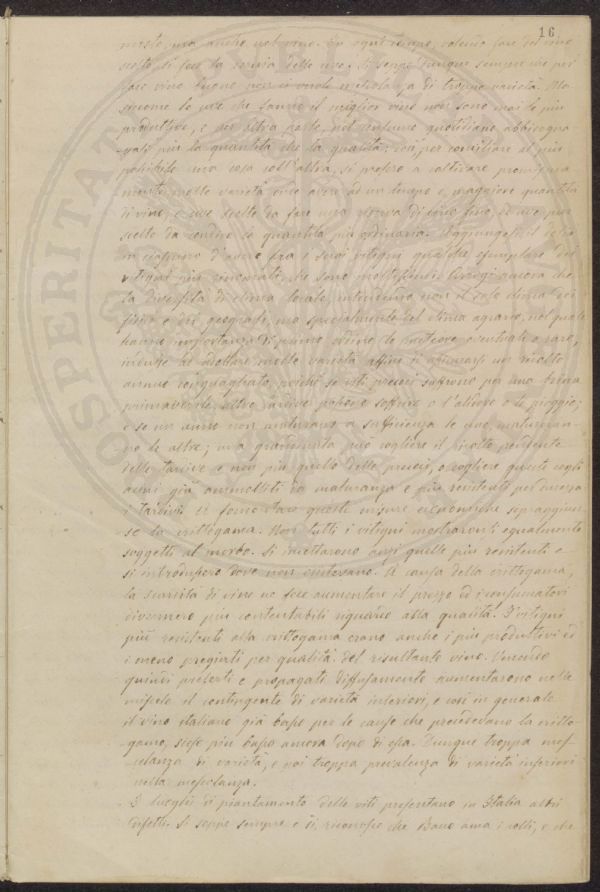 16
mosto, ma anche nel vino. In ogni tempo, volendo fare del vino
scelto, si fece la cernita delle uve. Si seppe dunque sempre che per
fare vino buono non ci vuole mescolanza di troppe varietà. Ma
siccome le uve che fanno il miglior vino non sono mai le più
produttive, e per altra parte, nel consumo quotidiano abbisogna
più la quantità che la qualità; così, per conciliare il più
possibile una cosa coll'altra, si prese a coltivare promiscua
mente molte varietà onde avere ad un tempo e maggiore quantità
di vino, e uve scelte da fare una riserva di vino fino,
scelto da vino in quantità più ordinaria. Si aggiunge
in ciascuno d'avere fra i suoi vitigni qualche esemplare dei
vitigni più rinomati, che sono moltissimi. Arrogi ancora che
la diversità di clima locale, intendiamo non il solo clima dei
fisici e dei geografi, ma specialmente del clima agrario, nel quale
hanno importanza di primo ordine le meteore eventuali e rare,
induce ad adottare molte varietà affine di assicurarsi un ricolto
annuo ragguagliato, poiché se viti precoci soffrono per una brina
primaverile, altre tardive possono soffrire o l'aridore o le pioggie;
e se un anno non maturano a sufficienza le une, matureran-
no le altre; ma quandunque può cogliere il ricolto pendente
delle tardive e non più quello delle precoci, o cogliere queste cogli
acini già ammolliti da maturanza e più resistenti per durezza
i tardivi. Si fomentare queste misure economiche sopraggiun-
se la crittogama. Non tutti i vitigni mostraronsi egualmente
soggetti al morbo. Si rimettarono anzi quelle più resistenti e
si introdussero dove non esistevano. A causa della crittogama,
la scarsità di vino ne fece aumentare il prezzo ed i consumatori
divennero più contentabili riguardo alla qualità. I vitigni
più resistenti alla crittogama erano anche i più produttivi ed
i meno pregiati per qualità del risultante vino. Vennero
quindi prescelti e propagati diffusamente aumentarono nelle
miscele il contingente di varietà inferiori, e così in generale
il vino italiano già basso per le cause che precedevano la critto-
gama, scese più basso ancora dopo di essa. Dunque troppa mes-
colanza di varietà, e poi troppa prevalenza di varietà inferiori
nella mescolanza.
I luoghi di piantamento delle viti presentano in Italia altri
difetti. Si seppe sempre e si riconosce che Bacco ama i colli, e che